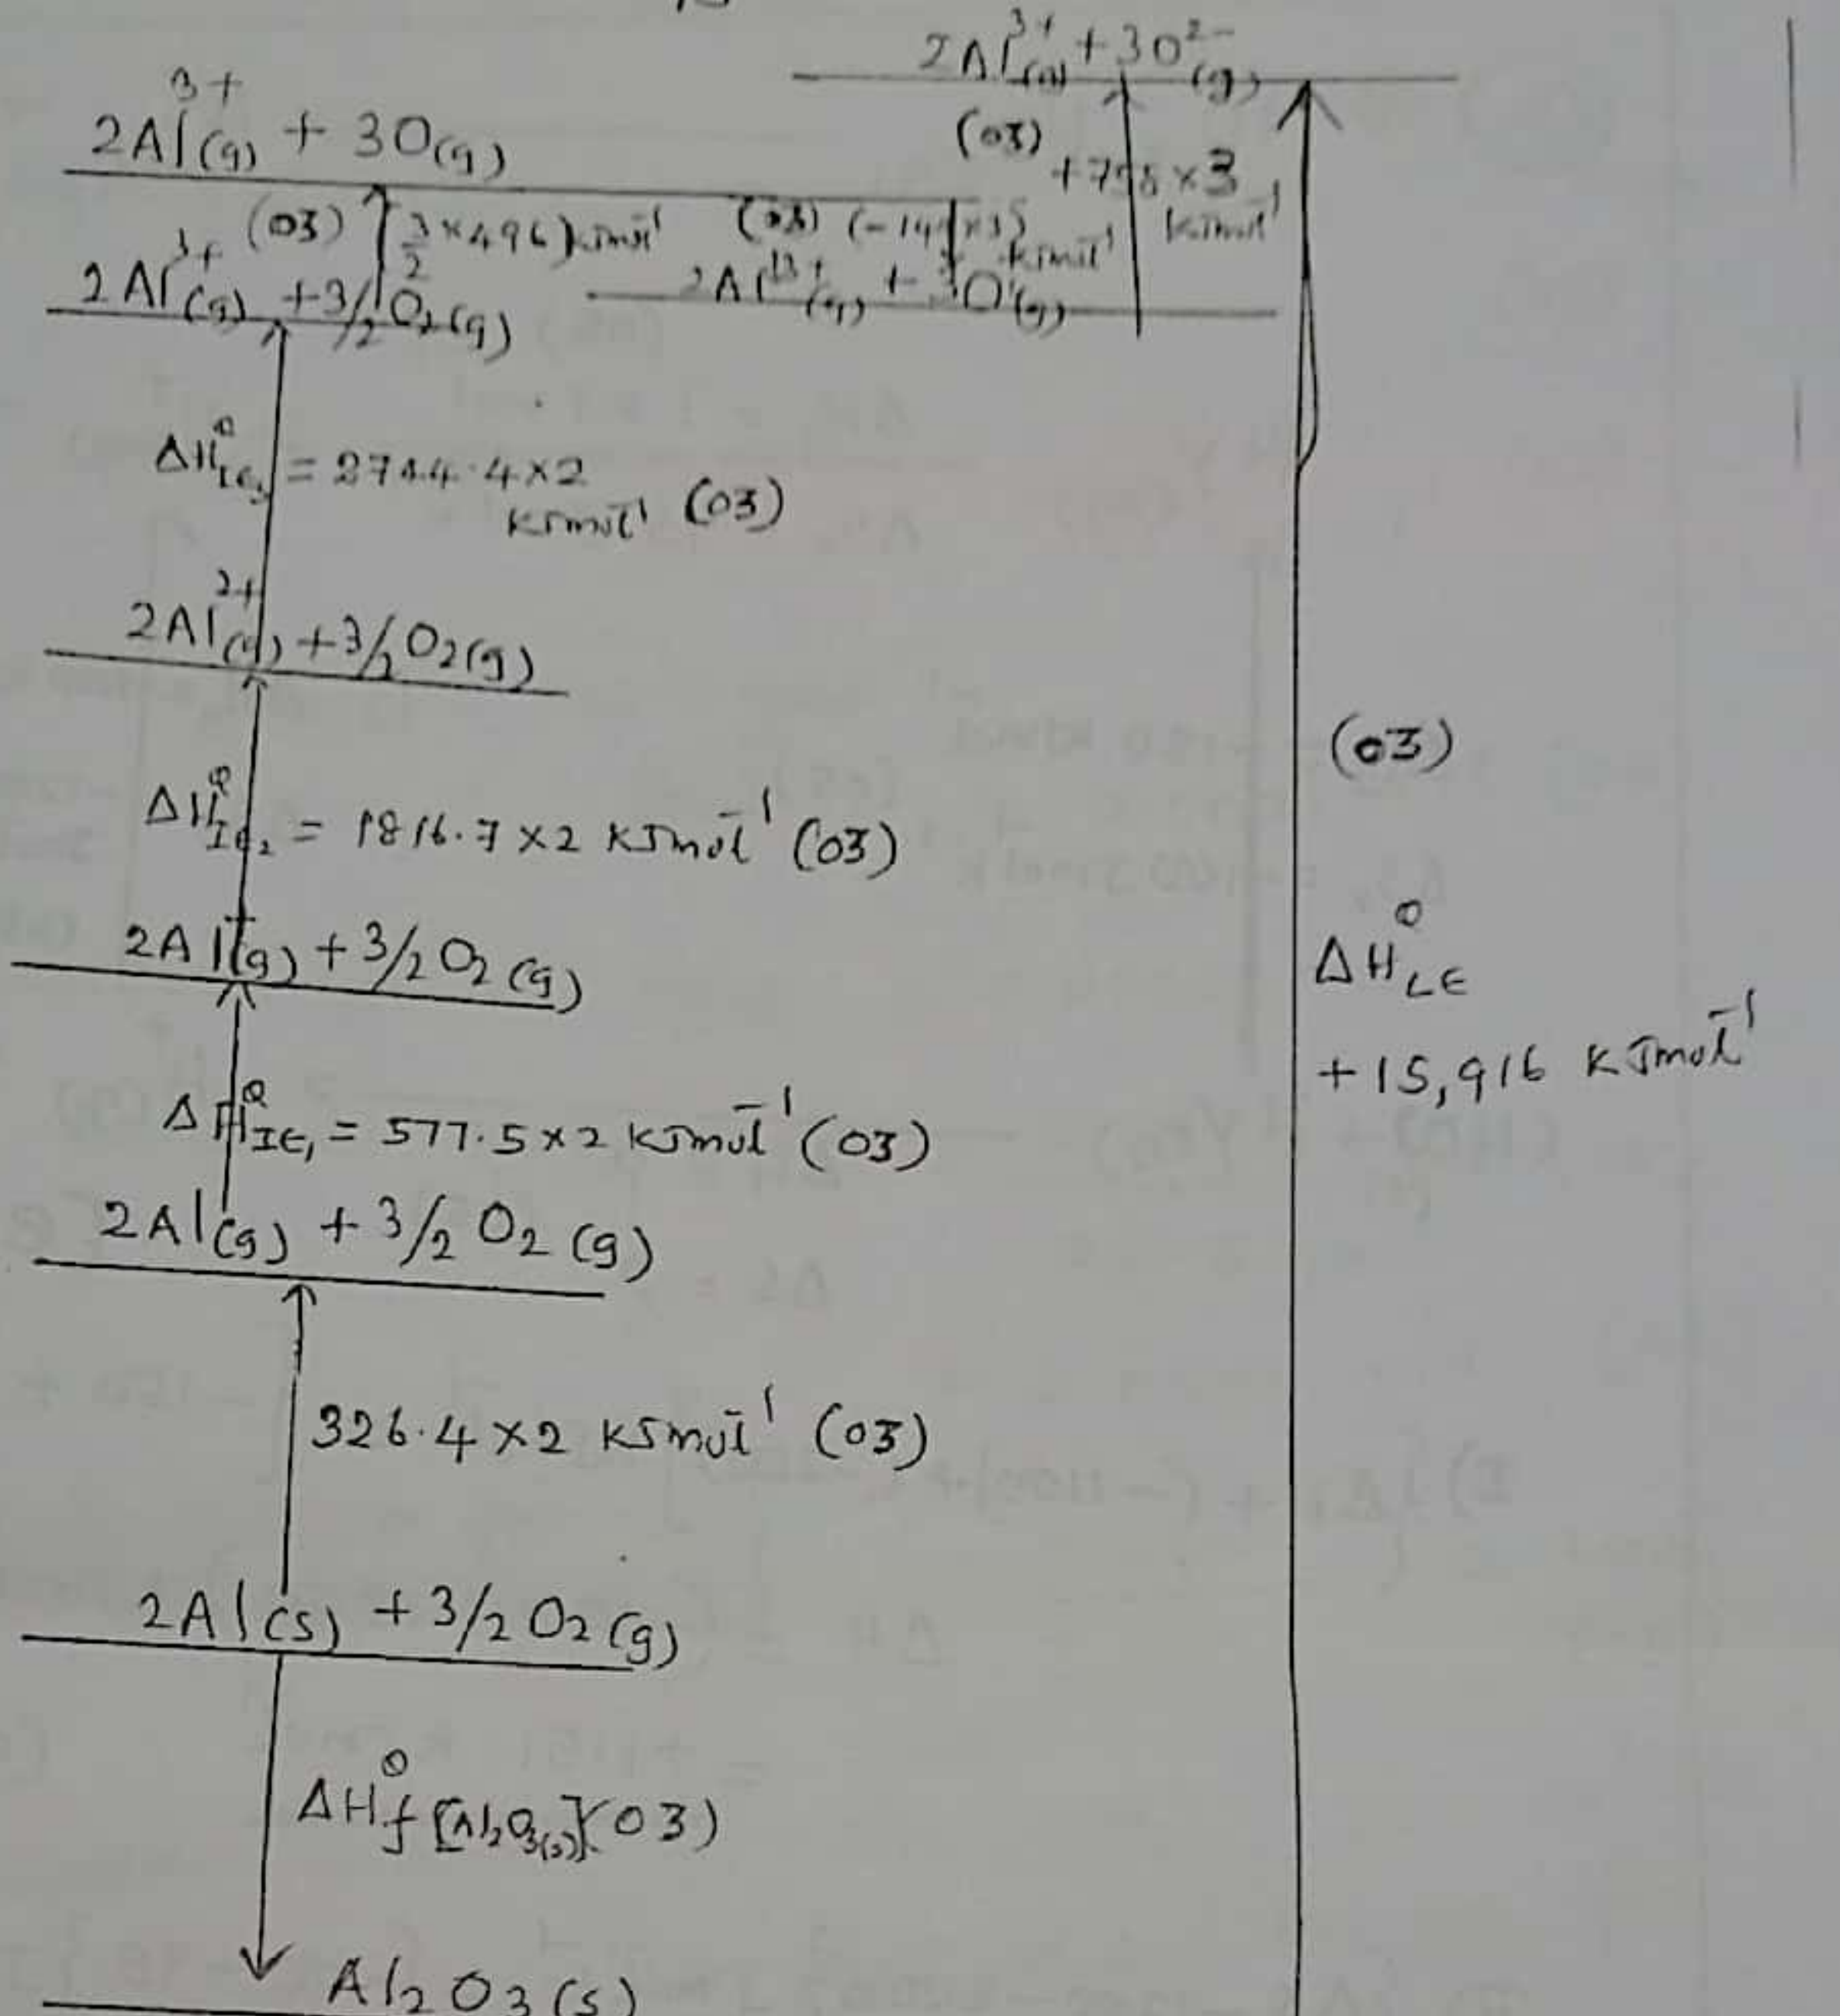 2Al³⁺(g) + 3O²⁻(g)
2Al³⁺(g) + 3O(g)
(03)
+ × 3
kJmol⁻¹
(03) 3/2 × 496) kJmol⁻¹
(03) (-14 ×3)
kJmol⁻¹
2Al³⁺(g) + 3/2 O2(g)
2Al³⁺(g) + 3O⁻(g)
ΔH°IE3 = 2744.4 × 2
kJmol⁻¹ (03)
2Al²⁺(g) + 3/2 O2(g)
(03)
ΔH°IE2 = 1816.7 × 2 kJmol⁻¹ (03)
2Al⁺(g) + 3/2 O2(g)
ΔH°LE
+15,916 kJmol⁻¹
ΔH°IE1 = 577.5 × 2 kJmol⁻¹ (03)
2Al(g) + 3/2 O2(g)
326.4 × 2 kJmol⁻¹ (03)
2Al(s) + 3/2 O2(g)
ΔH°f [Al2O3(s)] (03)
Al2O3(s)